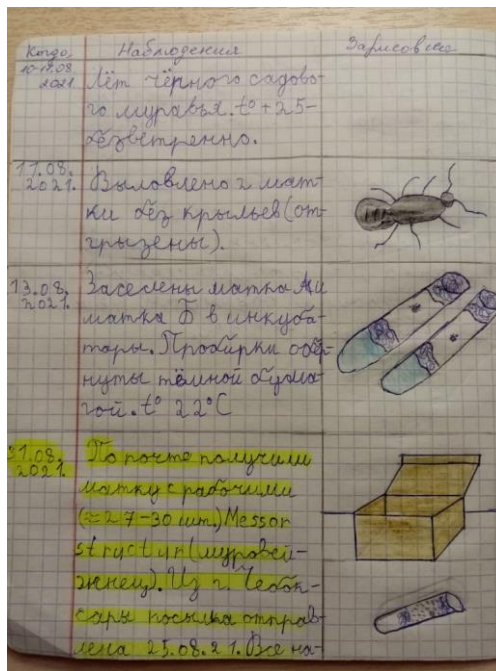 Когда
Наблюдения
Зарисовки
10-17.08
2021
Лёт чёрного садово-
го муравья. t° +25-
безветренно.
11.08.
2021.
Выловлено 2 мат-
ки без крыльев (от-
грызены).
13.08.
2021.
Заселены матка А и
матка Б в инкуба-
торы. Пробирки обёр-
нуты тёмной бума-
гой. t° 22°C
31.08.
2021.
По почте получили
матку с рабочими
(≈27-30 шт.) Messor
structur (муравей-
жнец). Из г. Чебок-
сары посылка отправ-
лена 25.08.21. Все на-